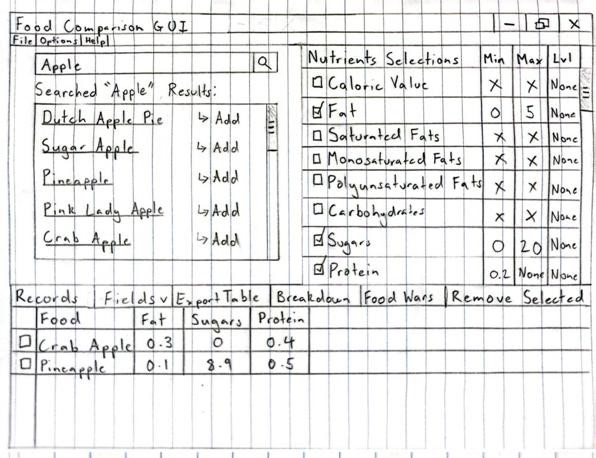 Food Comparison GUI
File Options Help
Apple
Searched "Apple" Results:
Dutch Apple Pie Add
Sugar Apple Add
Pineapple Add
Pink Lady Apple Add
Crab Apple Add
Nutrients Selections Min Max Lvl
Caloric Value X X None
Fat 0 5 None
Saturated Fats X X None
Monosaturated Fats X X None
Polyunsaturated Fats X X None
Carbohydrates X X None
Sugars 0 20 None
Protein 0.2 None None
Records Fields v Export Table Breakdown Food Wars Remove Selected
Food Fat Sugars Protein
Crab Apple 0.3 0 0.4
Pineapple 0.1 8.9 0.5